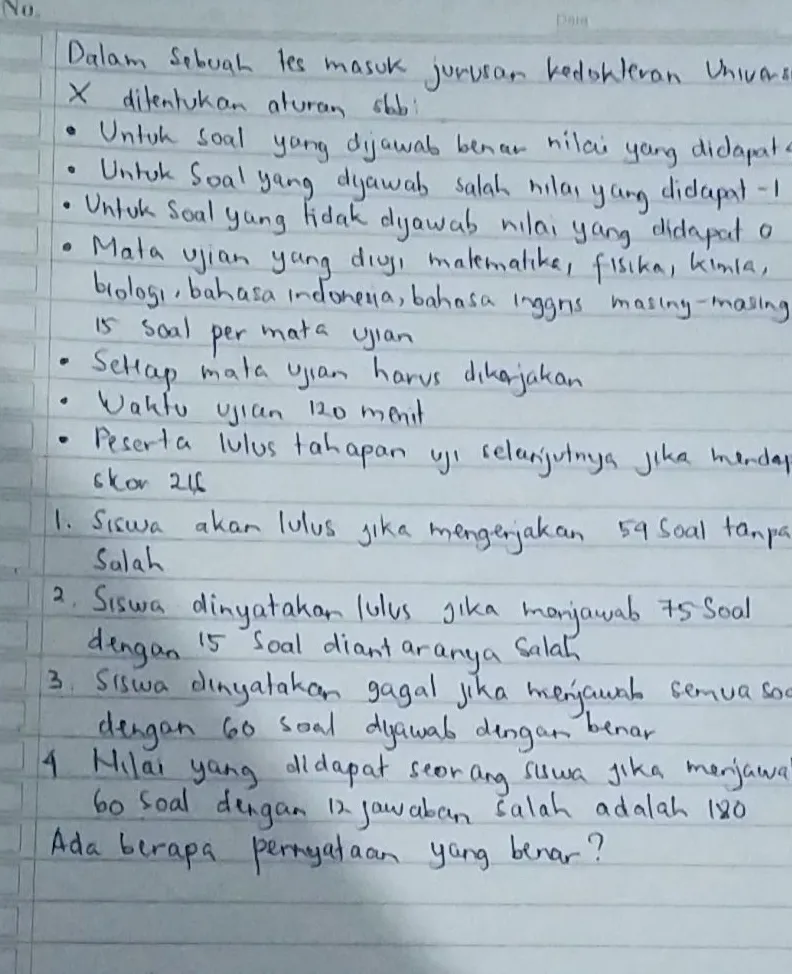 No.
Date
Dalam Sebuah tes masuk jurusan kedokteran Univers
X ditentukan aturan sbb:
• Untuk soal yang dijawab benar nilai yang didapat
• Untuk Soal yang dijawab salah nilai yang didapat -1
• Untuk Soal yang tidak dijawab nilai yang didapat 0
• Mata ujian yang diuji matematika, fisika, kimia,
biologi, bahasa indonesia, bahasa inggris masing-masing
15 soal per mata ujian
• Setiap mata ujian harus dikerjakan
• Waktu ujian 120 menit
• Peserta lulus tahapan uji selanjutnya jika mendap
skor
1. Siswa akan lulus jika mengerjakan 59 Soal tanpa
Salah
2. Siswa dinyatakan lulus jika menjawab 75 Soal
dengan 15 Soal diantaranya Salah
3. Siswa dinyatakan gagal jika menjawab semua soa
dengan 60 soal dijawab dengan benar
4 Nilai yang didapat seorang siswa jika menjawa
60 soal dengan 12 jawaban salah adalah 180
Ada berapa pernyataan yang benar?